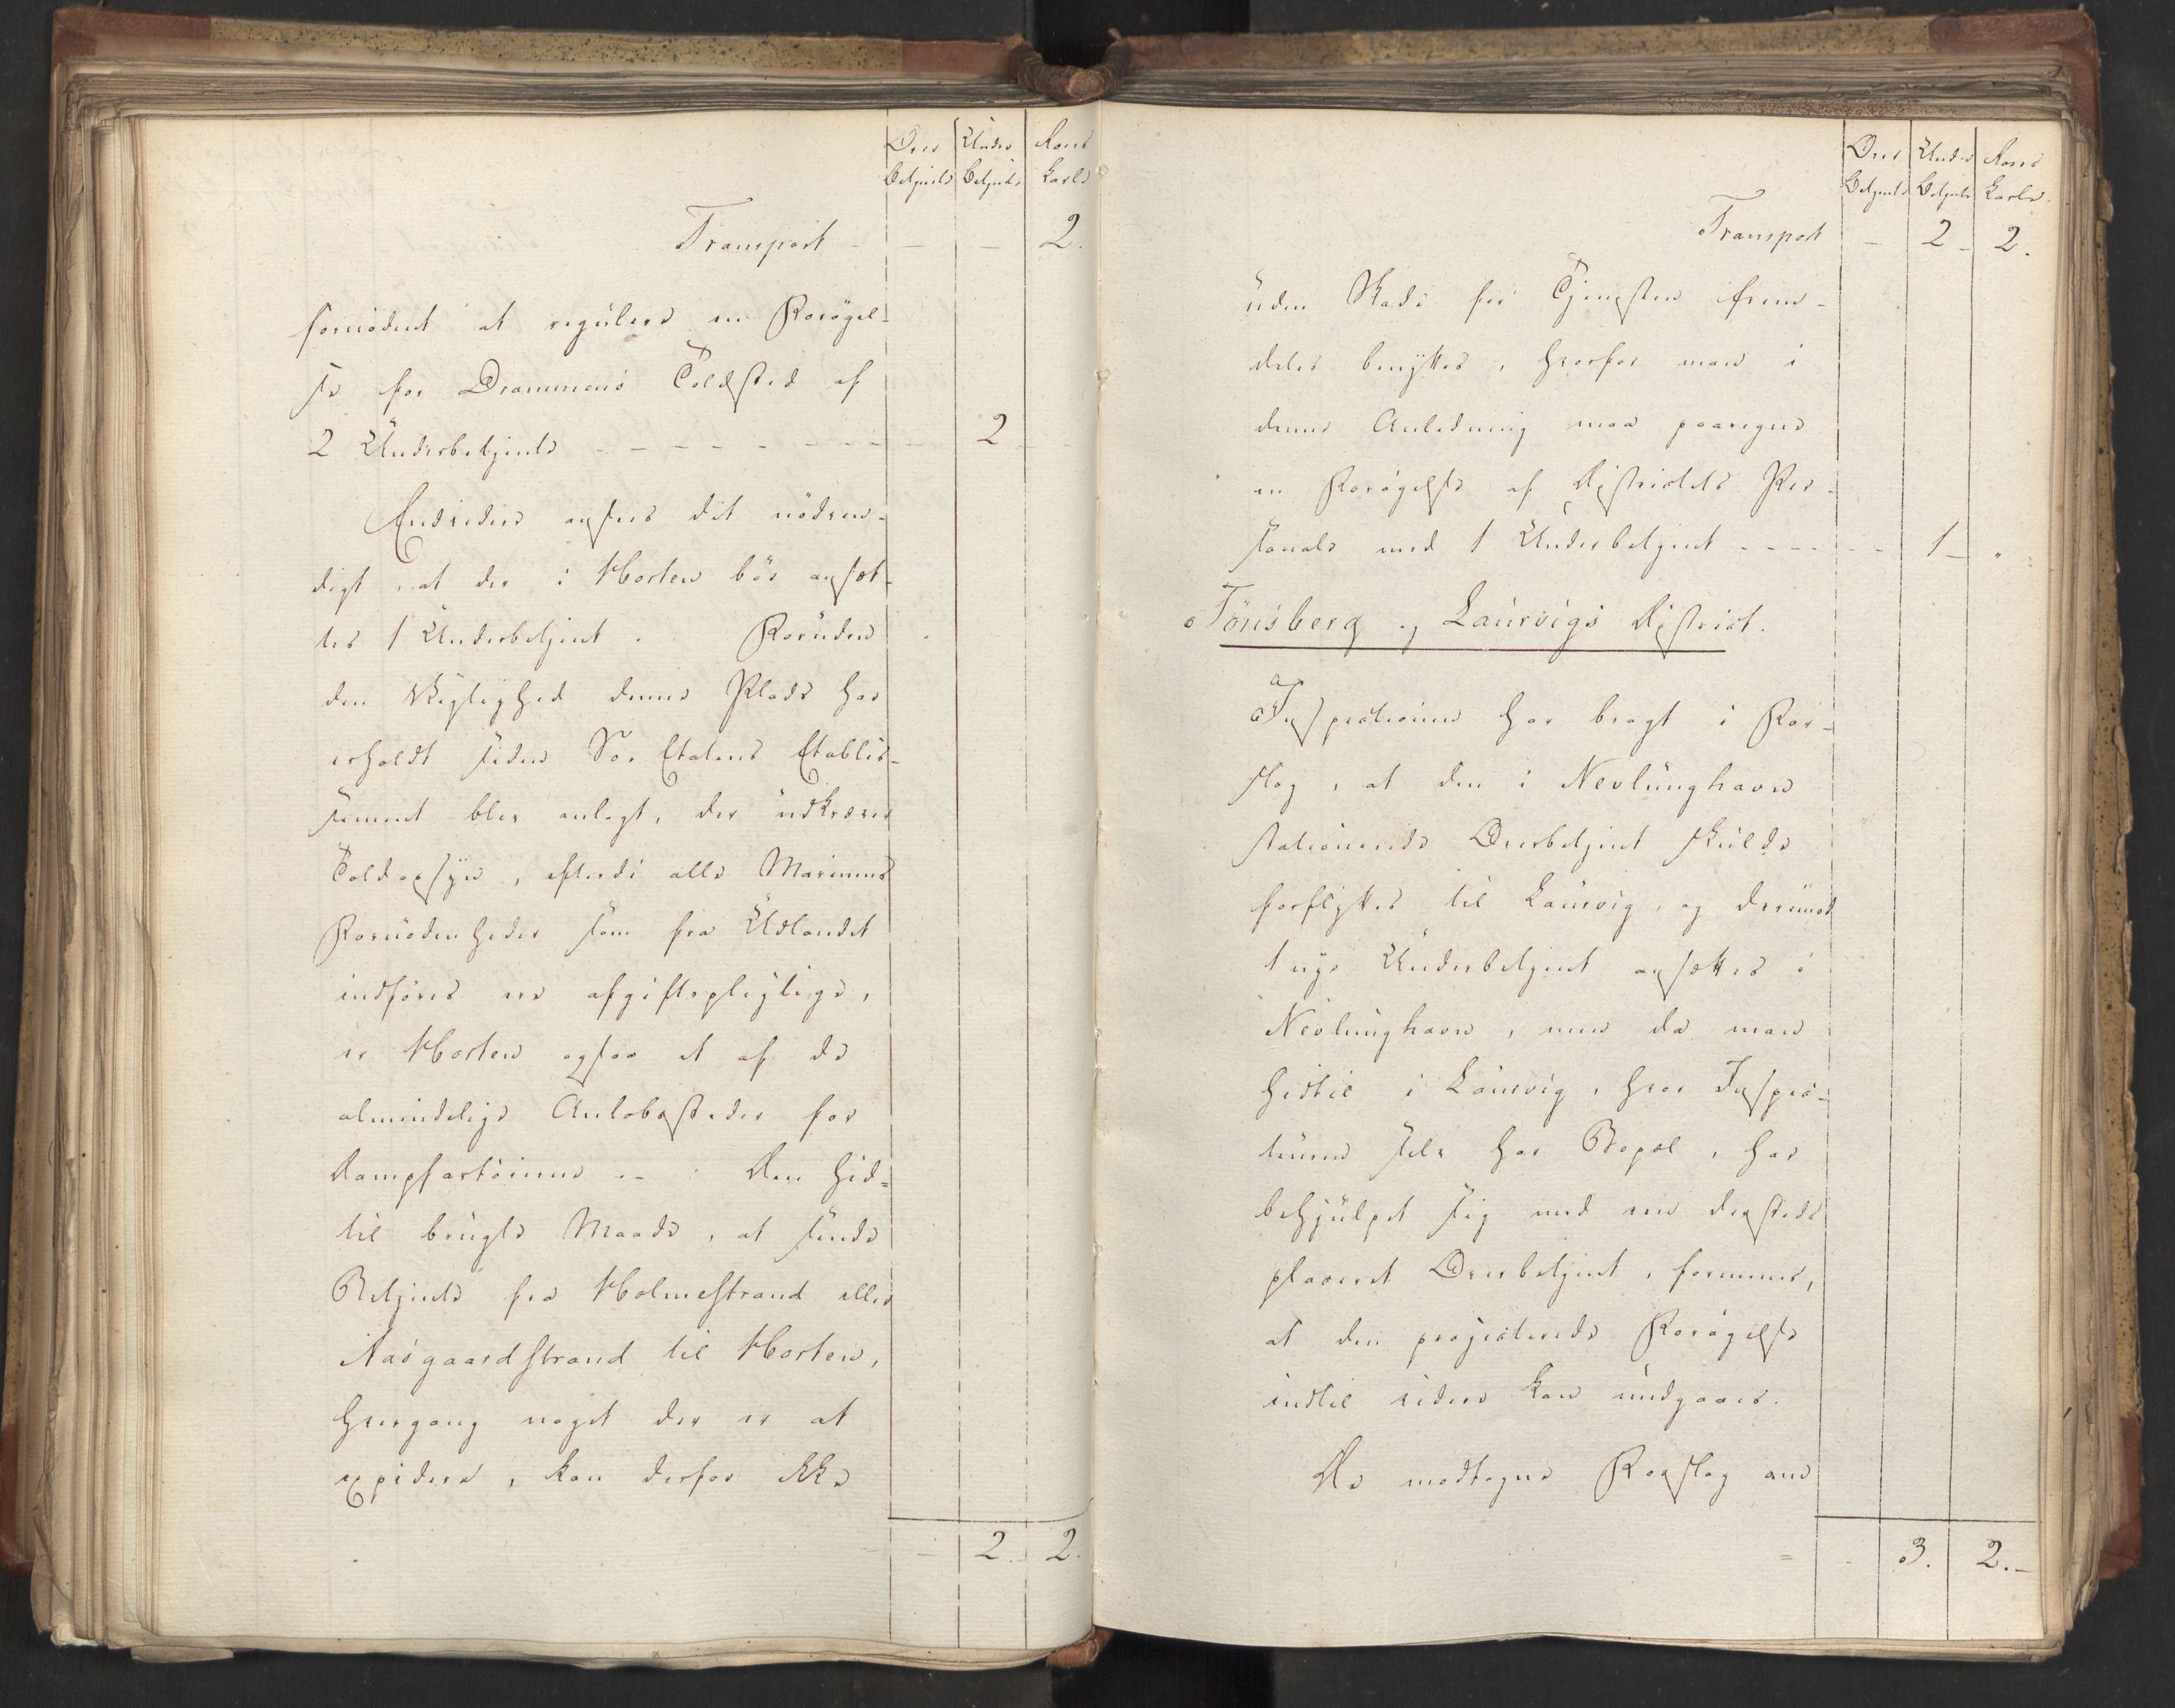 Over Under Roers
betjente Betjente Karle
Transport - - - 2.
fornödent at regulere en Forögel-
se for Drammens Toldsted af
2 Underbetjente - - - - - - - - 2
Endvidere ansees det nödven-
digt, at der i Horten bör ansæt-
tes 1 Underbetjent. Foruden
den Vigtighed denne Plads har
erholdt siden Sö Etatens Etablis-
sement blev anlagt, der udkræver
Toldopsyn, efterdi alle Marinens
Fornödenheder som fra Udlandet
indföres ere afgiftspligtige,
er Horten ogsaa et af de
almindelige Anlöbssteder for
Dampfartöierne. - Den hid-
til brugte Maade, at sende
Betjente fra Holmestrand eller
Aasgaardstrand til Horten,
hvergang noget der er at
expedere, kan derfor ikke
- 2. 2.
Over Under Roers
Betjente Betjente Karle.
Transport - 2 - 2.
uden Skade for Tjenesten frem-
deles benyttes, hvorfor man i
denne Anledning maa paaregne
en Forögelse af Districtets Per-
sonale med 1 Underbetjent - - - - - - 1 - "
Tönsberg og Laurvigs District.
Inspectionen har bragt i For-
slag, at den i Nevlunghavn
stationerede Overbetjent skulde
forflyttes til Laurvig, og derimod
1 nye Underbetjent ansættes i
Nevlunghavn, men da man
hidtil i Laurvig, hvor Inspec-
teuren selv har Bopæl, har
behjulpet sig med een dersteds
placeret Overbetjent, formenes,
at den projecterede Forögelse
indtil videre kan undgaaes.
De modtagne Forslag om
= - 3. 2. -